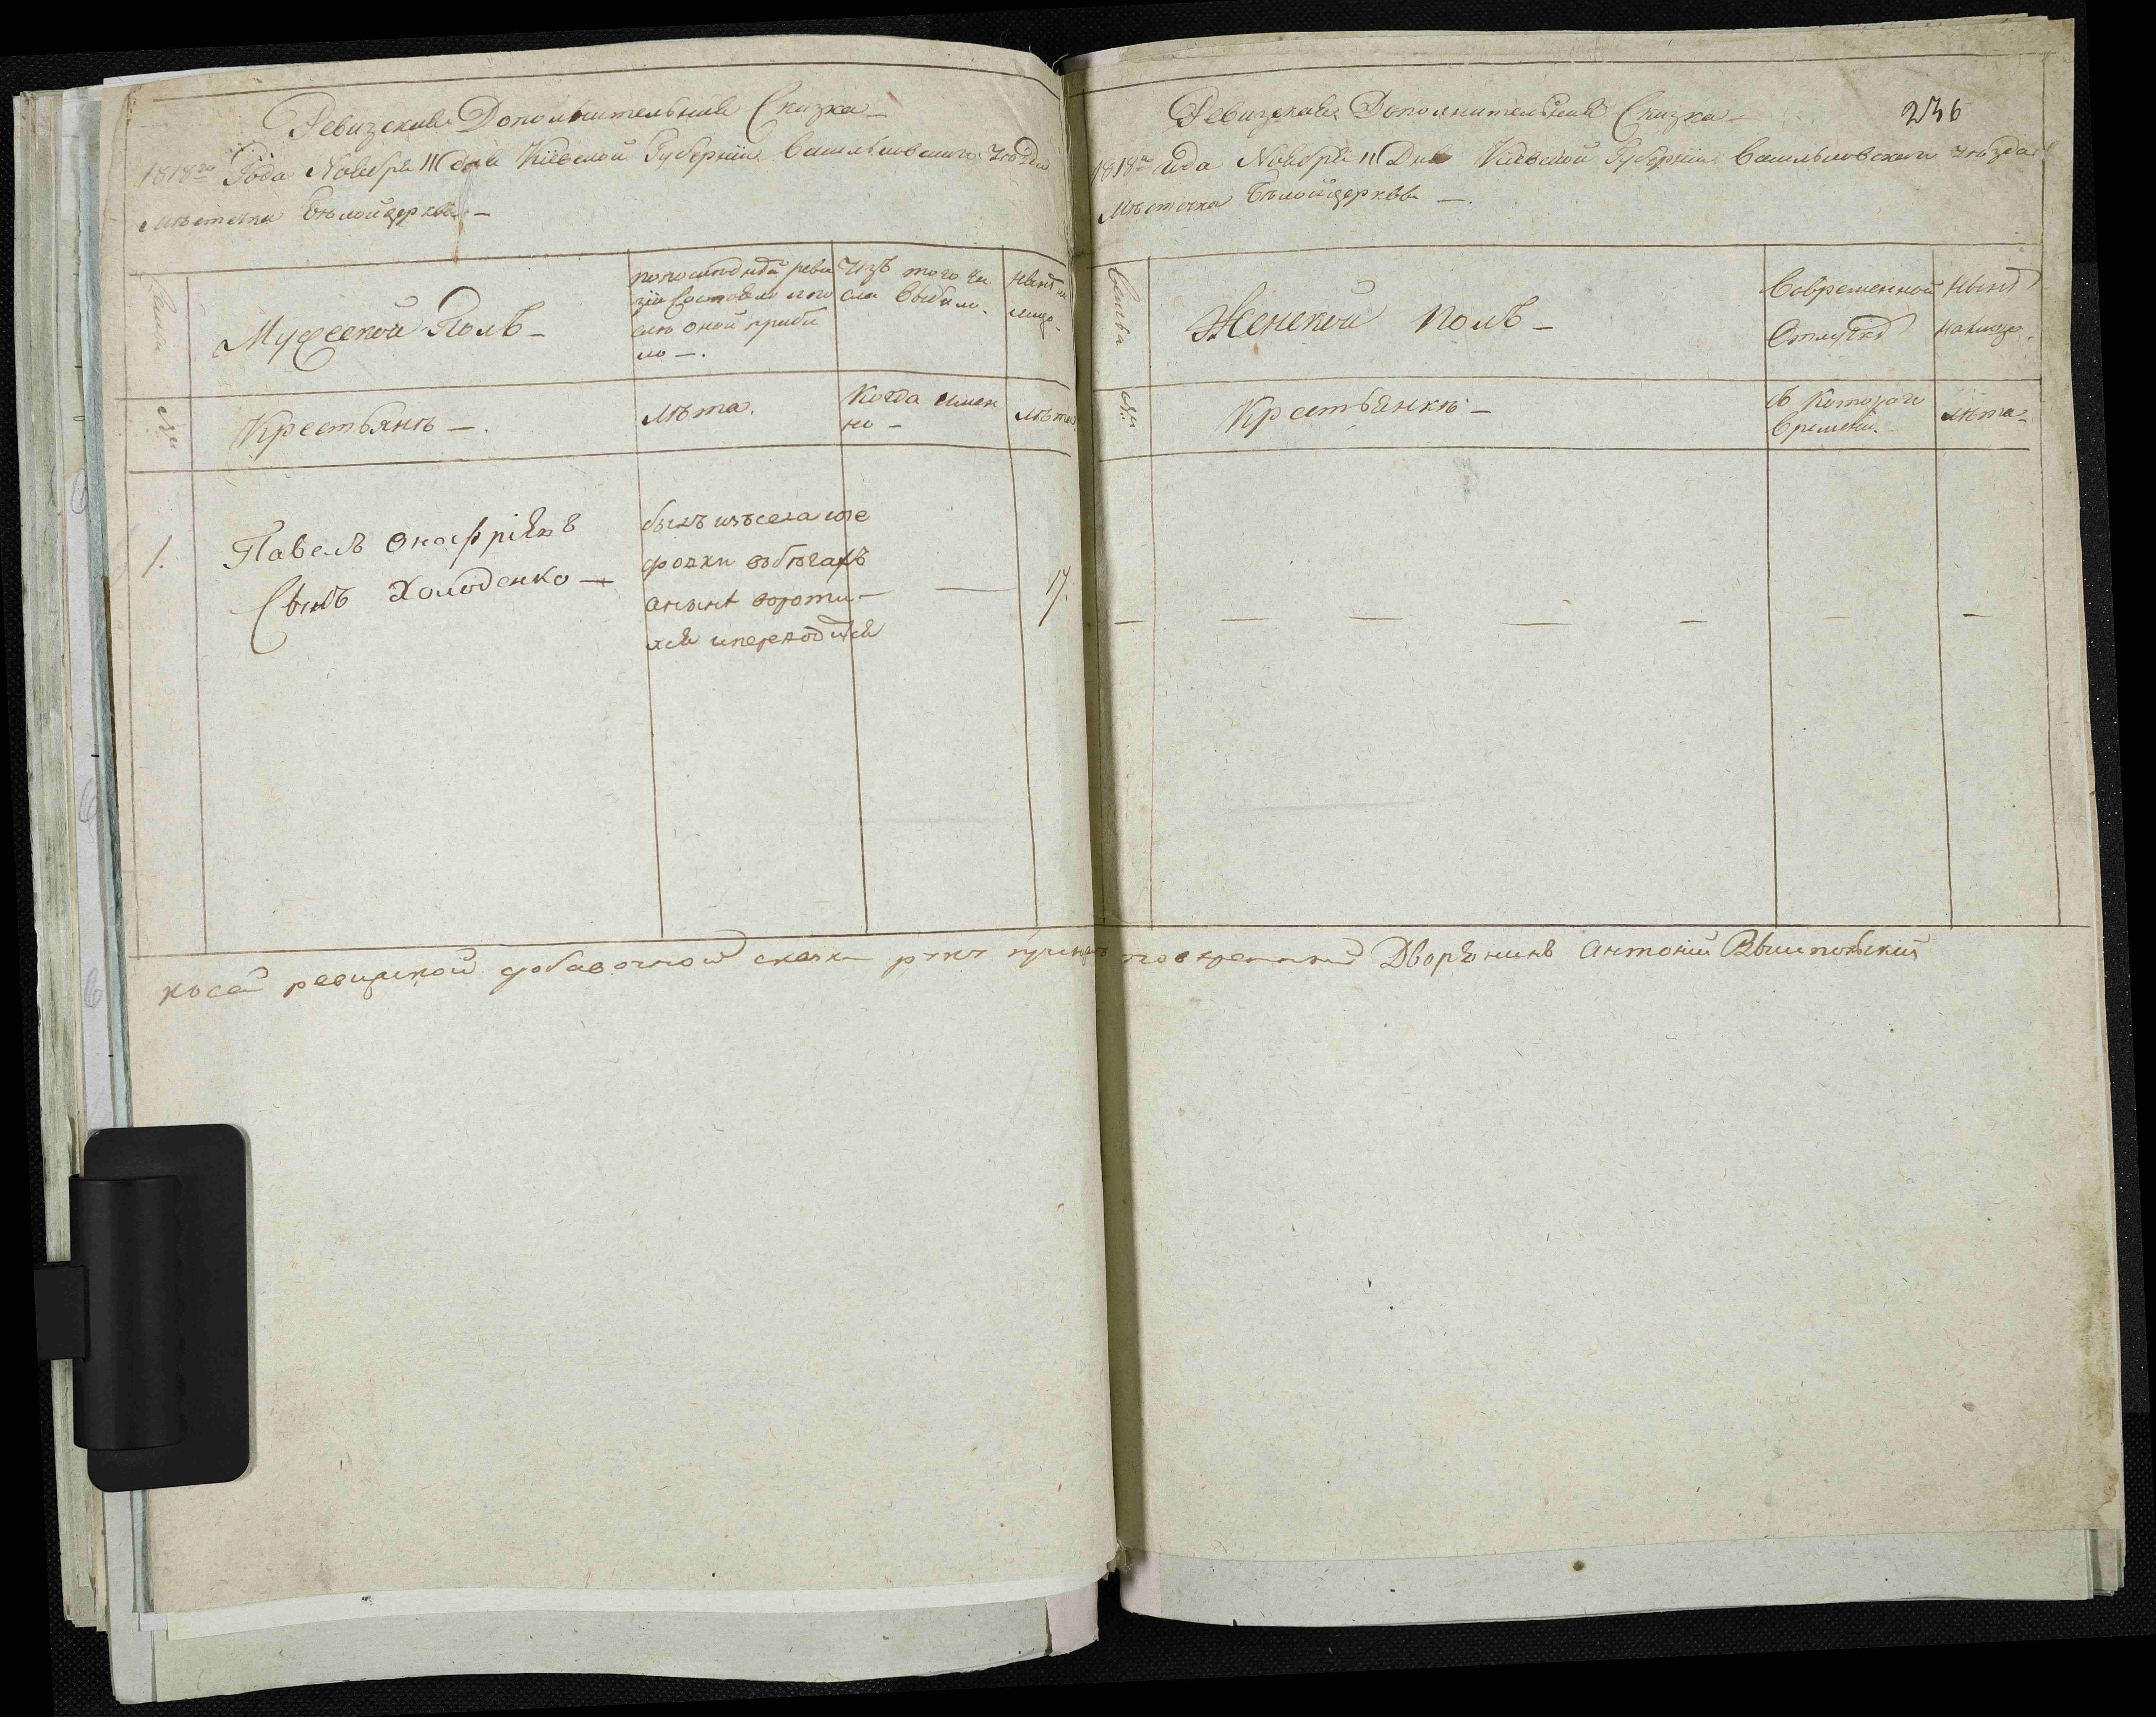 Ревизская Дополнительная Сказка
1818го Года Ноября 11 дня Кіевской Губерніи Васильковскаго уѣзда
мѣстечка Бѣлойцеркви
Семьи
Мужеской Полъ
по последней реви
зіи состояло и по
слѣ оной прибы
ло
Изъ того чи
сла выбыло.
Нынѣ на
лицо
№
Крестьянѣ
лѣта.
Когда имен
но
лѣта
1.
Павелъ Онофріевъ
Сынъ Холоденко
былъ изъ села
въ бѣгахъ
а нынѣ вороти
лся и
17.
236
Ревизская Дополнительная Сказка
1818го года Ноября 11 Дня Кіевской Губерніи Васильковскаго уѣзда
Мѣстечка Бѣлойцеркви
Семьи
Женской полъ
Во временной
Отлучкѣ
Нынѣ
на лицо
№
Крестьянкѣ
съ Котораго
времени.
лѣта
къ сей ревизской добавочной сказки Дворѣнинъ Антоній